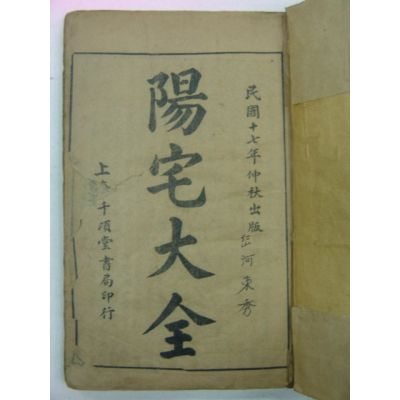 民國十七年仲秋出版
河東秀
陽宅大全
上海千頃堂書局印行